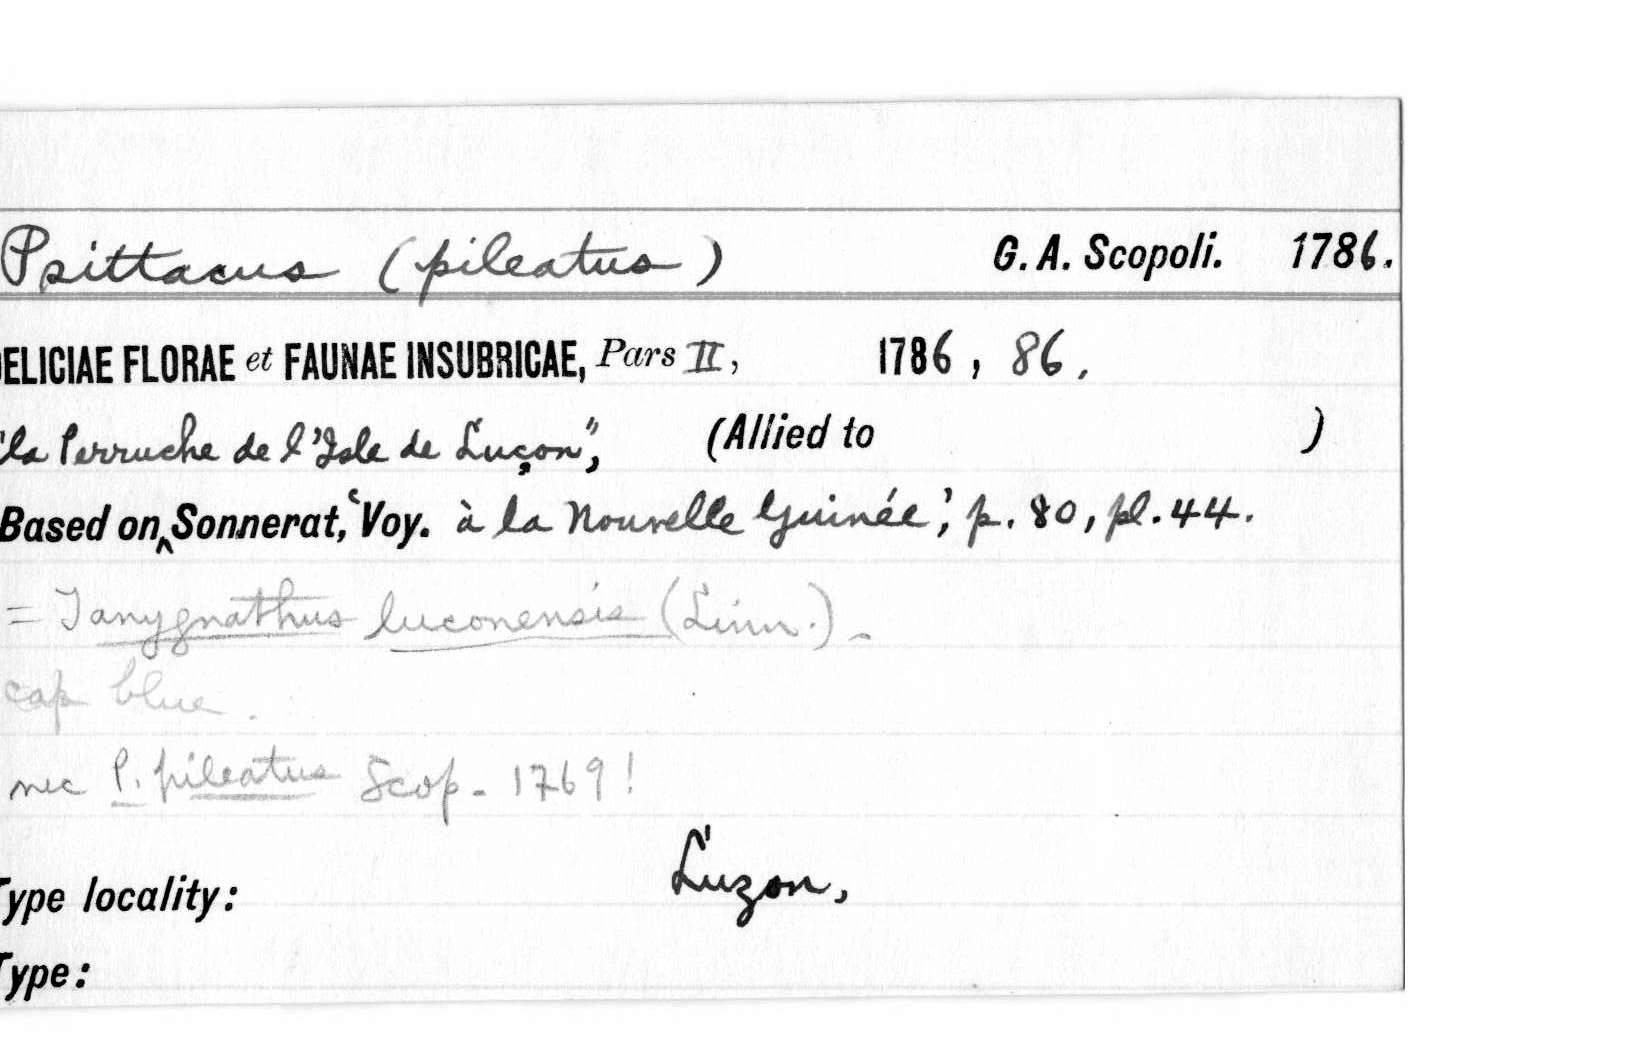 Psittacus (pileatus) G. A. Scopoli. 1786.
ELICIAE FLORAE et FAUNAE INSUBRICAE, Pars II, 1786, 86.
"la Perruche de l'Isle de Luçon", (Allied to )
Based on ^ Sonnerat, 'Voy. à la Nouvelle Guinée', p. 80, pl. 44.
= Tanygnathus luconensis (Linn.) -
cap blue.
nec P. pileatus Scop. 1769!
Type locality: Luzon,
Type: